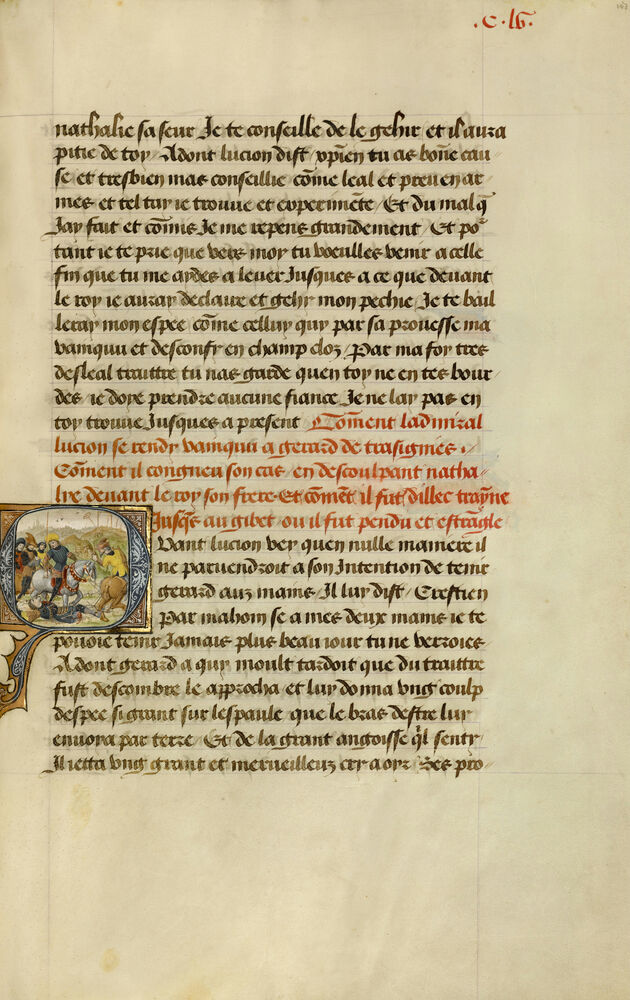 .C. lv.
nathalie sa seur Je te conseille de le gehir et il aura
pitie de toy / Adont lucion dist / xpīen tu as bonē cau
se et tresbien mas conseillie cōme leal et preu en ar
mes et tel tay ie trouue et experimēte / Et du mal q̄
Jay fait et cōmis Je me repens grandement / Et po
tant ie te prie que vers moy tu voeulles venir a celle
fin que tu me aydes a leuer Jusques a ce que deuant
le roy ie auray declaire et gehy mon pechie Je te bail
leray mon espee cōme celluy quy par sa prouesse ma
vainquu et desconfy en champ clos / Par ma foy tres
desleal traittre tu nas garde quen toy ne en tes bour
des ie doye prendre aucune fiance Je ne lay pas en
toy trouue Jusques a present / Comēnt ladmiral
lucion se rendy vainquu a gerard de trasignies /
Comēnt il congneu son cas en descoulpant natha/
lye deuant le roy son frere Et cōmēt il fut dillec trayne
Jusq̄s au gibet ou il fut pendu et estrangle
Quant lucion vey quen nulle maniere il
ne paruendroit a son Intention de tenir
gerard aux mains / Il luy dist / Crestien
Par mahom se a mes deux mains ie te
pouoie tenir Jamais plus beau iour tu ne verroies
Adont gerard a quy moult tardoit que du traittre
fust descombre le approcha et luy donna vng coulp
despee si grant sur lespaule que le bras destre luy
enuoya par terre / Et de la grant angoisse ql̄ senty
Il ietta vng grant et merueilleux cry a oyr / Ses pro/